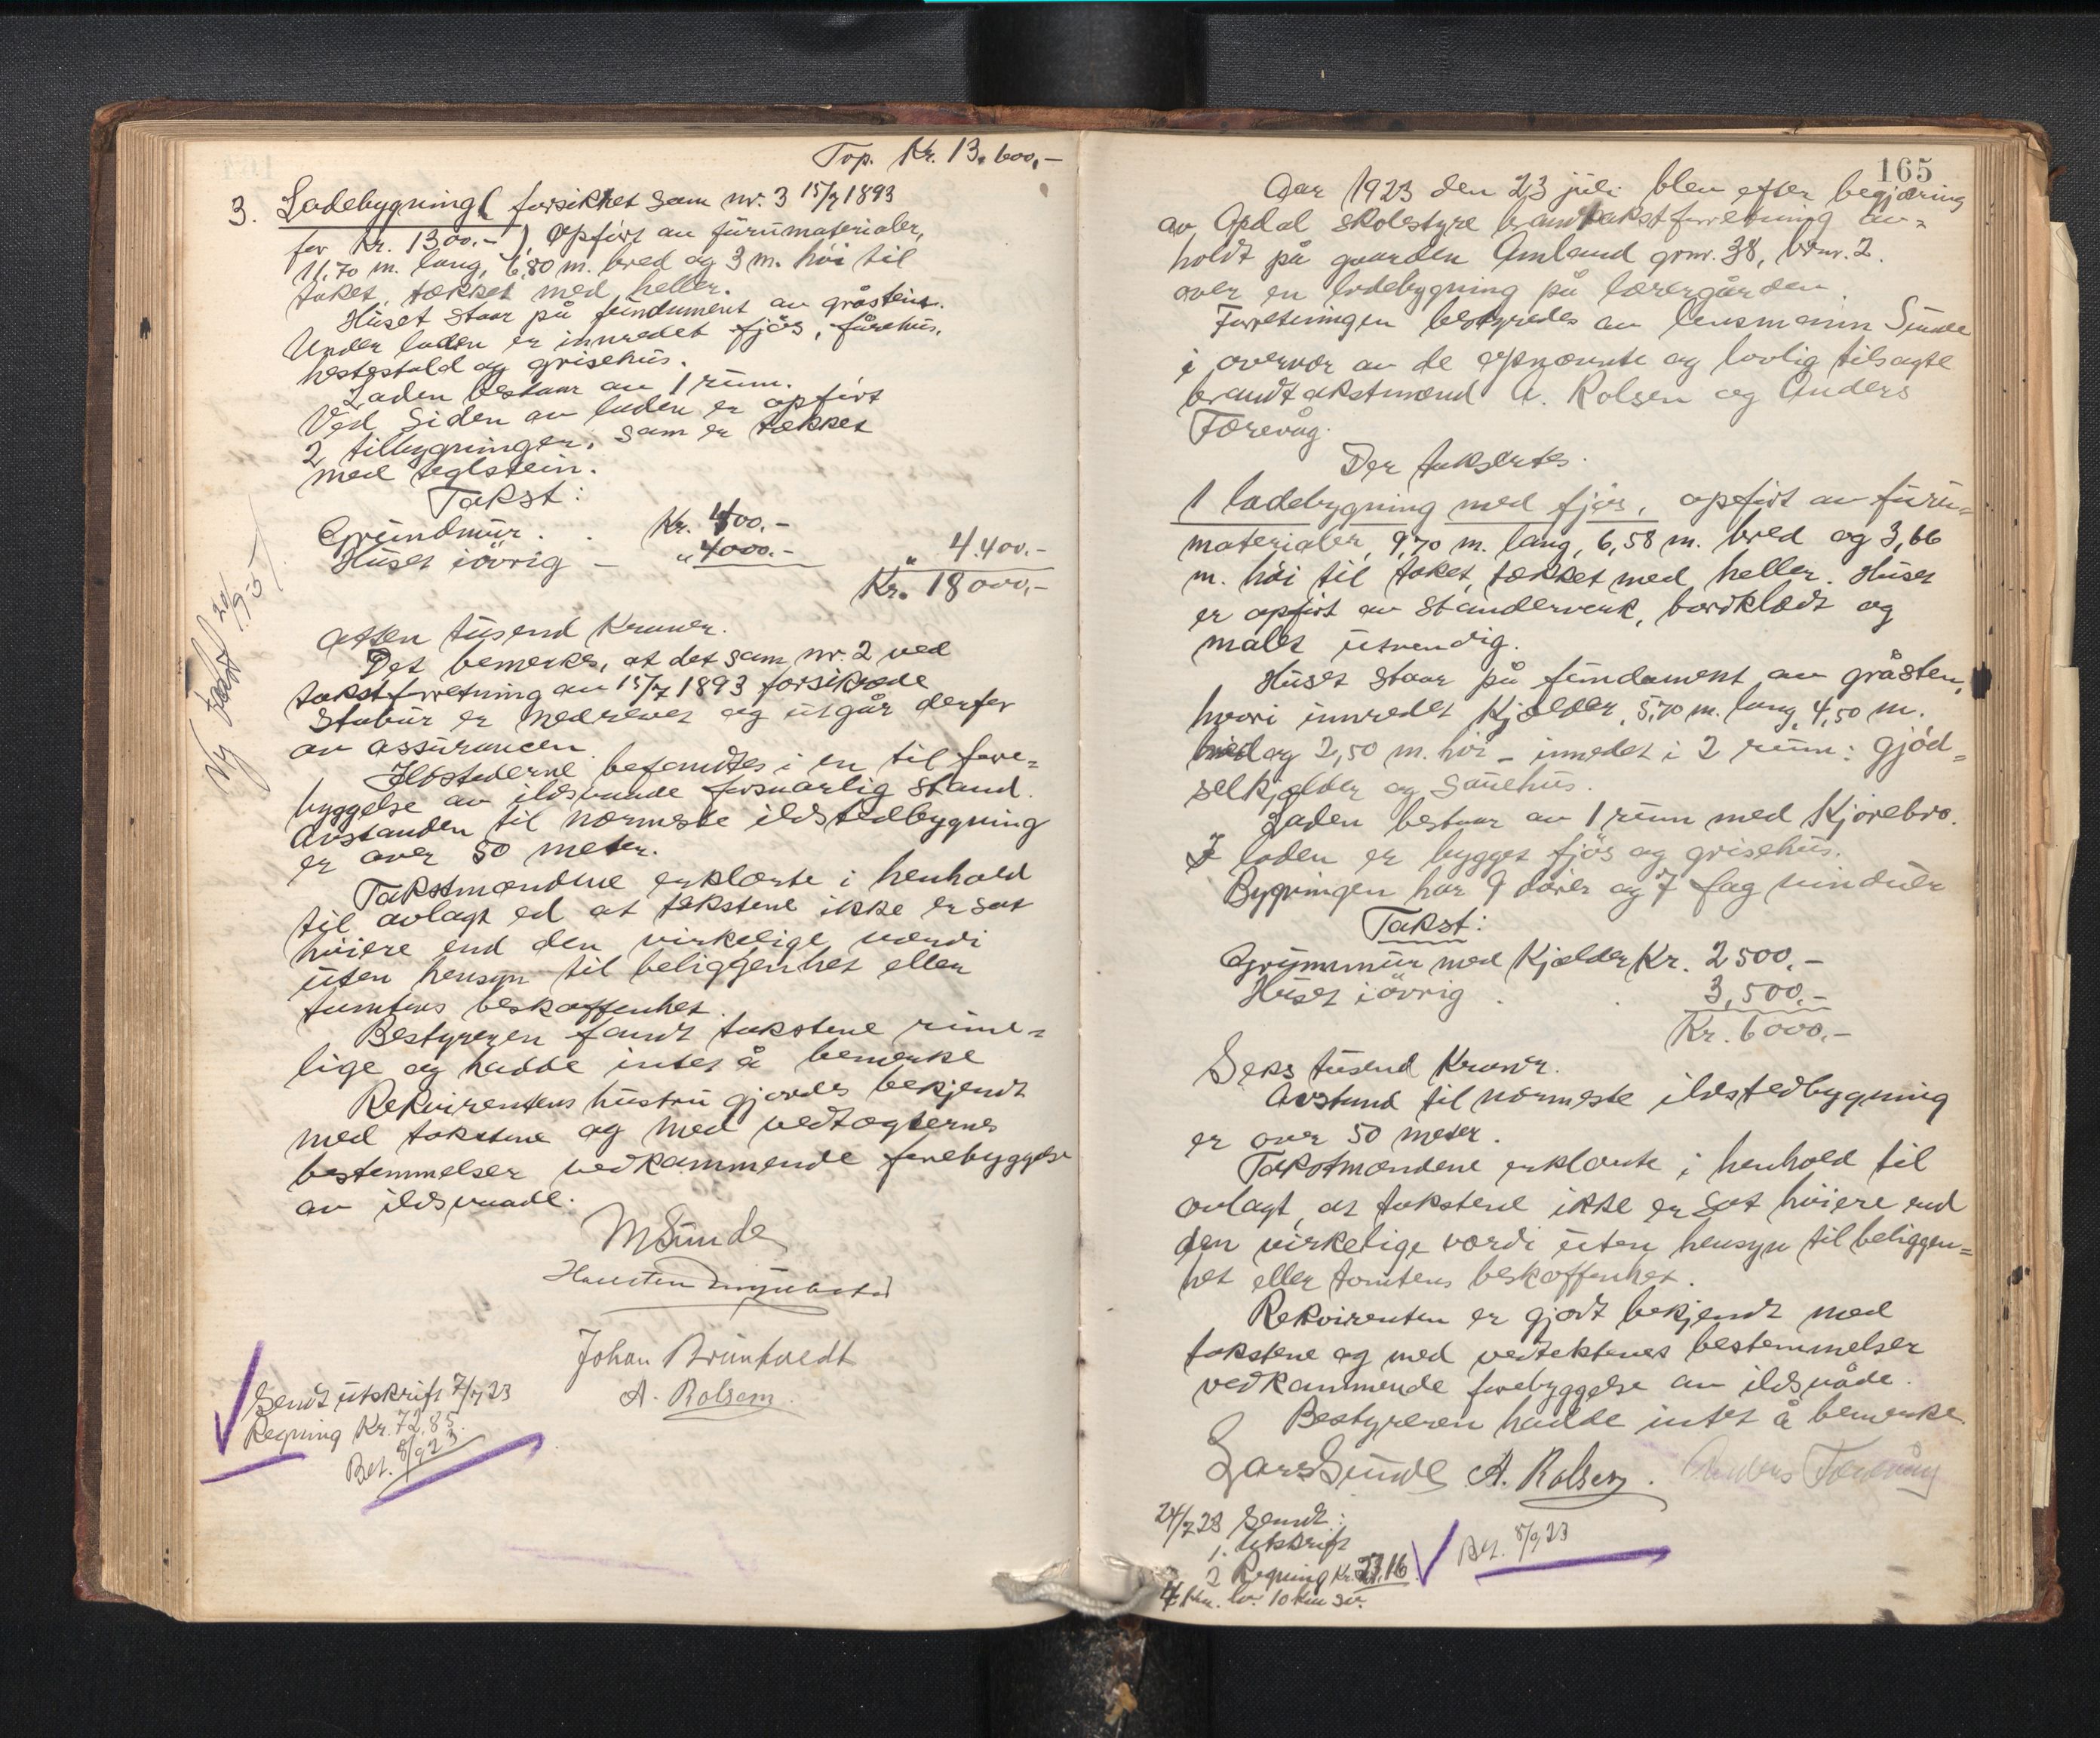 Top. Kr. 13.600,-
3. Ladebygning (forsikret som nr. 3 15/7 1893
for Kr. 1300.-), Opfört av furumaterialer,
11,70 m. lang, 6,80 m. bred og 3 m. höi til
taket, tækket med heller.
Huset staar på fundament av gråstein.
Under laden er innredet fjös, fårehus,
hestestald og grisehus.
Laden bestaar av 1 rum.
Ved Siden av laden er opfört
2 tilbygninger, som er tækket
med teglstein.
Takst:
Grundmur . . Kr. 400.-
Huset iövrig - " 4000.- " 4.400.-
Kr. 18000,-
Ny takst 20/9-5
Atten tusend Kroner.
Det bemerkes, at det som nr. 2 ved
takstforretning av 15/7 1893 forsikrede
Stabur er nedrevet og utgår derfor
av assurancen.
Ildstederne befandtes i en til fore=
byggelse av ildsvaade forsvarlig stand.
Avstanden til nærmeste ildstedbygning
er over 50 meter.
Takstmændene erklærte i henhold
til avlagt ed at takstene ikke er sat
höiere end den virkelige værdi
uten hensyn til beliggenhet eller
tomtens beskaffenhet.
Bestyreren fandt takstene rime=
lige og hadde intet å bemerke
Rekvirentens hustru gjordes bekjendt
med takstene og med vedtægternes
bestemmelser vedkommende forebyggelse
av ildsvaade.
M Sunde
Johan Brimtvedt
A. Rolsen
Sendt utskrift 7/7 23
Regning Kr. 72,85.
Bet. 8/9 23
165
Aar 1923 den 23 juli blev efter begjæring
av Opdal skolestyre brandtakstforretning av=
holdt på gaarden Amland grnr. 38, brnr. 2.
over en ladebygning på lærergården.
Forretningen bestyredes av lensmann Sunde
i overvær av de opnævnte og lovlig tilsagte
brandtakstmænd A. Rolsen og Anders
Færevåg.
Der taksertes.
1 ladebygning med fjös, opfört av furu=
materialer, 9,70 m. lang, 6,58 m. bred og 3,66
m. höi til taket, tækket med heller. Huset
er opfört av standerverk, bordklædt og
malet utvendig.
Huset staar på fundament av gråsten,
hvori innredet Kjælder, 5,70 m. lang, 4,50 m.
bred og 2,50 m. höi - innredet i 2 rum: gjöd=
selkjælder og sauehus.
Laden bestaar av 1 rum med Kjörebro.
I laden er bygget fjös og grisehus.
Bygningen har 9 dörer og 7 fag vinduer
Takst:
Grunnmur med Kjælder Kr. 2500.-
Huset iövrig . . 3,500.-
Kr. 6000.-
Seks tusend Kroner.
Avstand til nærmeste ildstedbygning
er over 50 meter.
Takstmændene erklærte i henhold til
avlagt, at takstene ikke er sat höiere end
den virkelige værdi uten hensyn til beliggen=
het eller tomtens beskaffenhet.
Rekvirenten er gjort bekjendt med
takstene og med vedtektenes bestemmelser
vedkommende forebyggelse av ildsvåde.
Bestyreren hadde intet å bemerke
Lars Sunde A. Rolsen. Anders Færevåg
24/7 23 Sendt:
1. Utskrift
2 Regning Kr. 23,16
Bet. 8/9 23
10 km